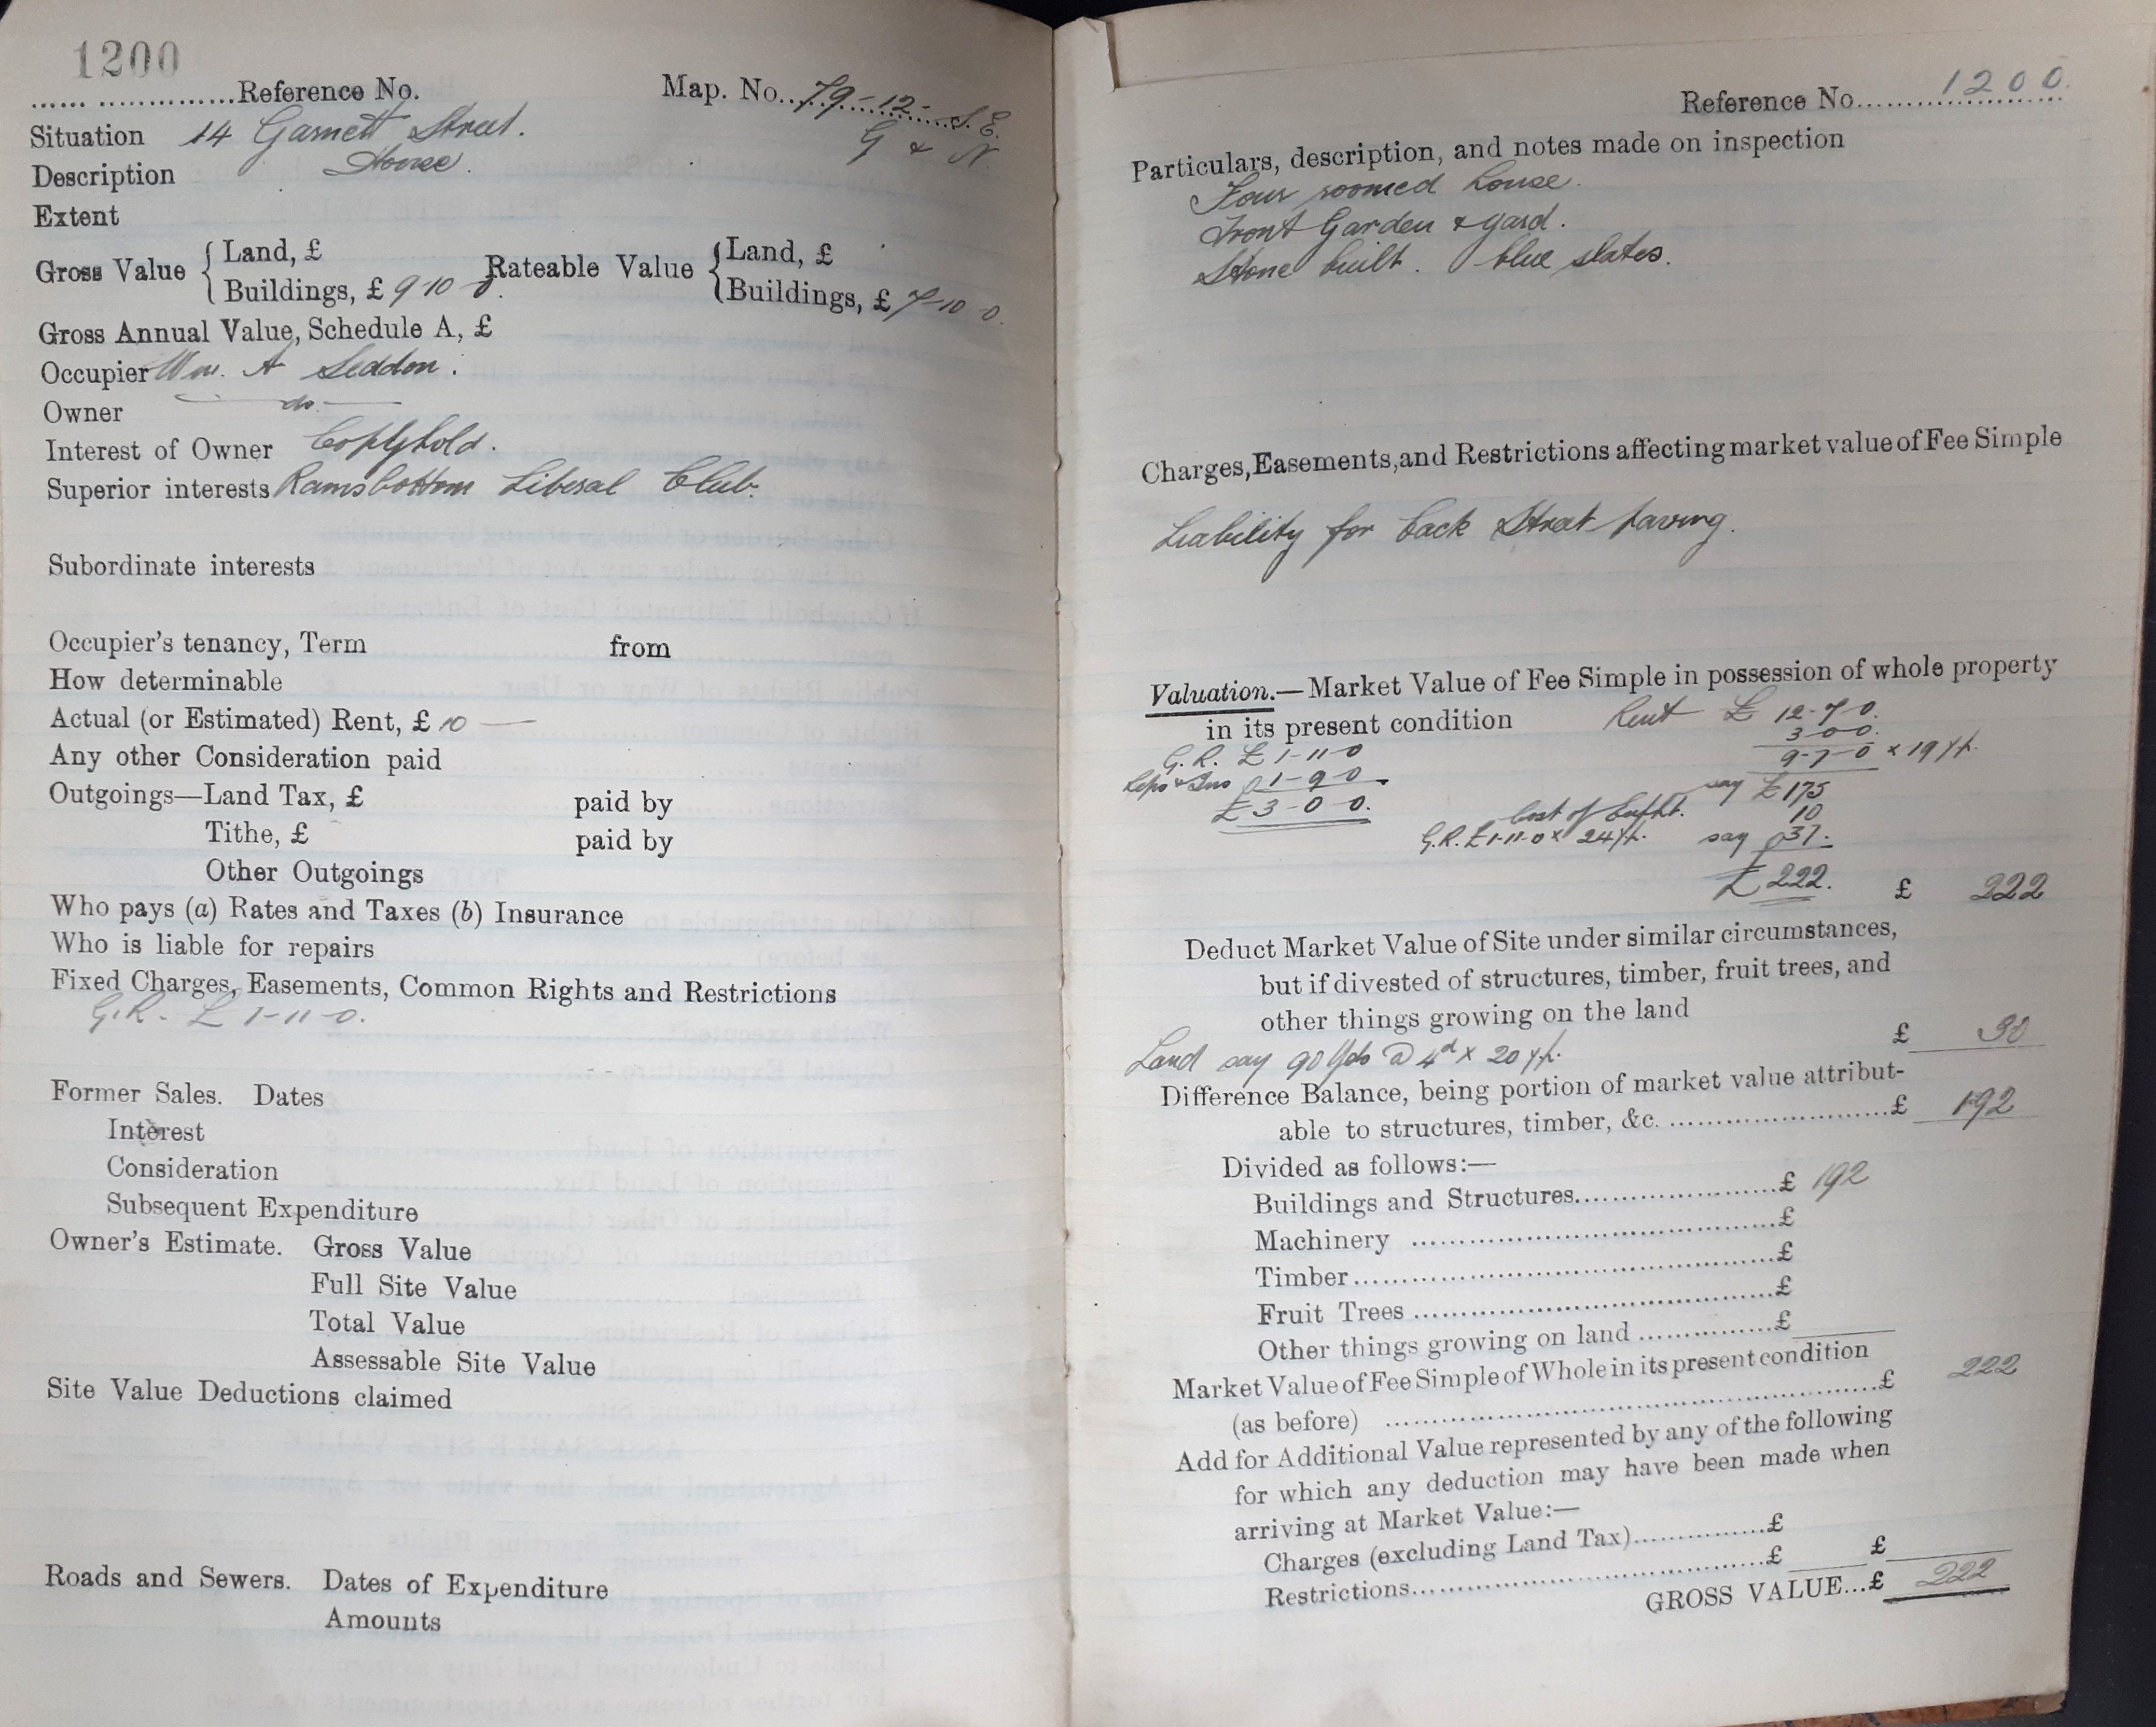 1200
Reference No.
Map. No. 79-12-S.E.
G & N.
Situation 14 Garnett Street.
Description House.
Extent
Gross Value { Land, £
Buildings, £ 9-10-0. Rateable Value { Land, £
Buildings, £ 7-10-0.
Gross Annual Value, Schedule A, £
Occupier Wm. A Seddon.
Owner — do —
Interest of Owner Copyhold.
Superior interests Ramsbottom Liberal Club.
Subordinate interests
Occupier's tenancy, Term from
How determinable
Actual (or Estimated) Rent, £ 10 —
Any other Consideration paid
Outgoings—Land Tax, £ paid by
Tithe, £ paid by
Other Outgoings
Who pays (a) Rates and Taxes (b) Insurance
Who is liable for repairs
Fixed Charges, Easements, Common Rights and Restrictions
G.R. £ 1-11-0.
Former Sales. Dates
Interest
Consideration
Subsequent Expenditure
Owner's Estimate. Gross Value
Full Site Value
Total Value
Assessable Site Value
Site Value Deductions claimed
Roads and Sewers. Dates of Expenditure
Amounts
Reference No. 1200.
Particulars, description, and notes made on inspection
Four roomed house.
Front Garden & yard.
Stone built. blue slates.
Charges, Easements, and Restrictions affecting market value of Fee Simple
Liability for back Street paving.
Valuation.—Market Value of Fee Simple in possession of whole property
in its present condition Rent £ 12-7-0.
3-0-0.
G.R. £ 1-11-0 9-7-0 × 19 yp.
Reps & Ins 1-9-0 say £175
£3-0-0. Cost of Enfht. 10
G.R. £1-11-0 × 24 yp. say 37.
£222. £ 222
Deduct Market Value of Site under similar circumstances,
but if divested of structures, timber, fruit trees, and
other things growing on the land
£ 30
Land say 90 Yds @ 4d × 20 yp.
Difference Balance, being portion of market value attribut-
able to structures, timber, &c. £ 192
Divided as follows:—
Buildings and Structures £ 192
Machinery £
Timber £
Fruit Trees £
Other things growing on land £
Market Value of Fee Simple of Whole in its present condition
(as before) £ 222
Add for Additional Value represented by any of the following
for which any deduction may have been made when
arriving at Market Value:—
Charges (excluding Land Tax) £
Restrictions £ £
GROSS VALUE...£ 222